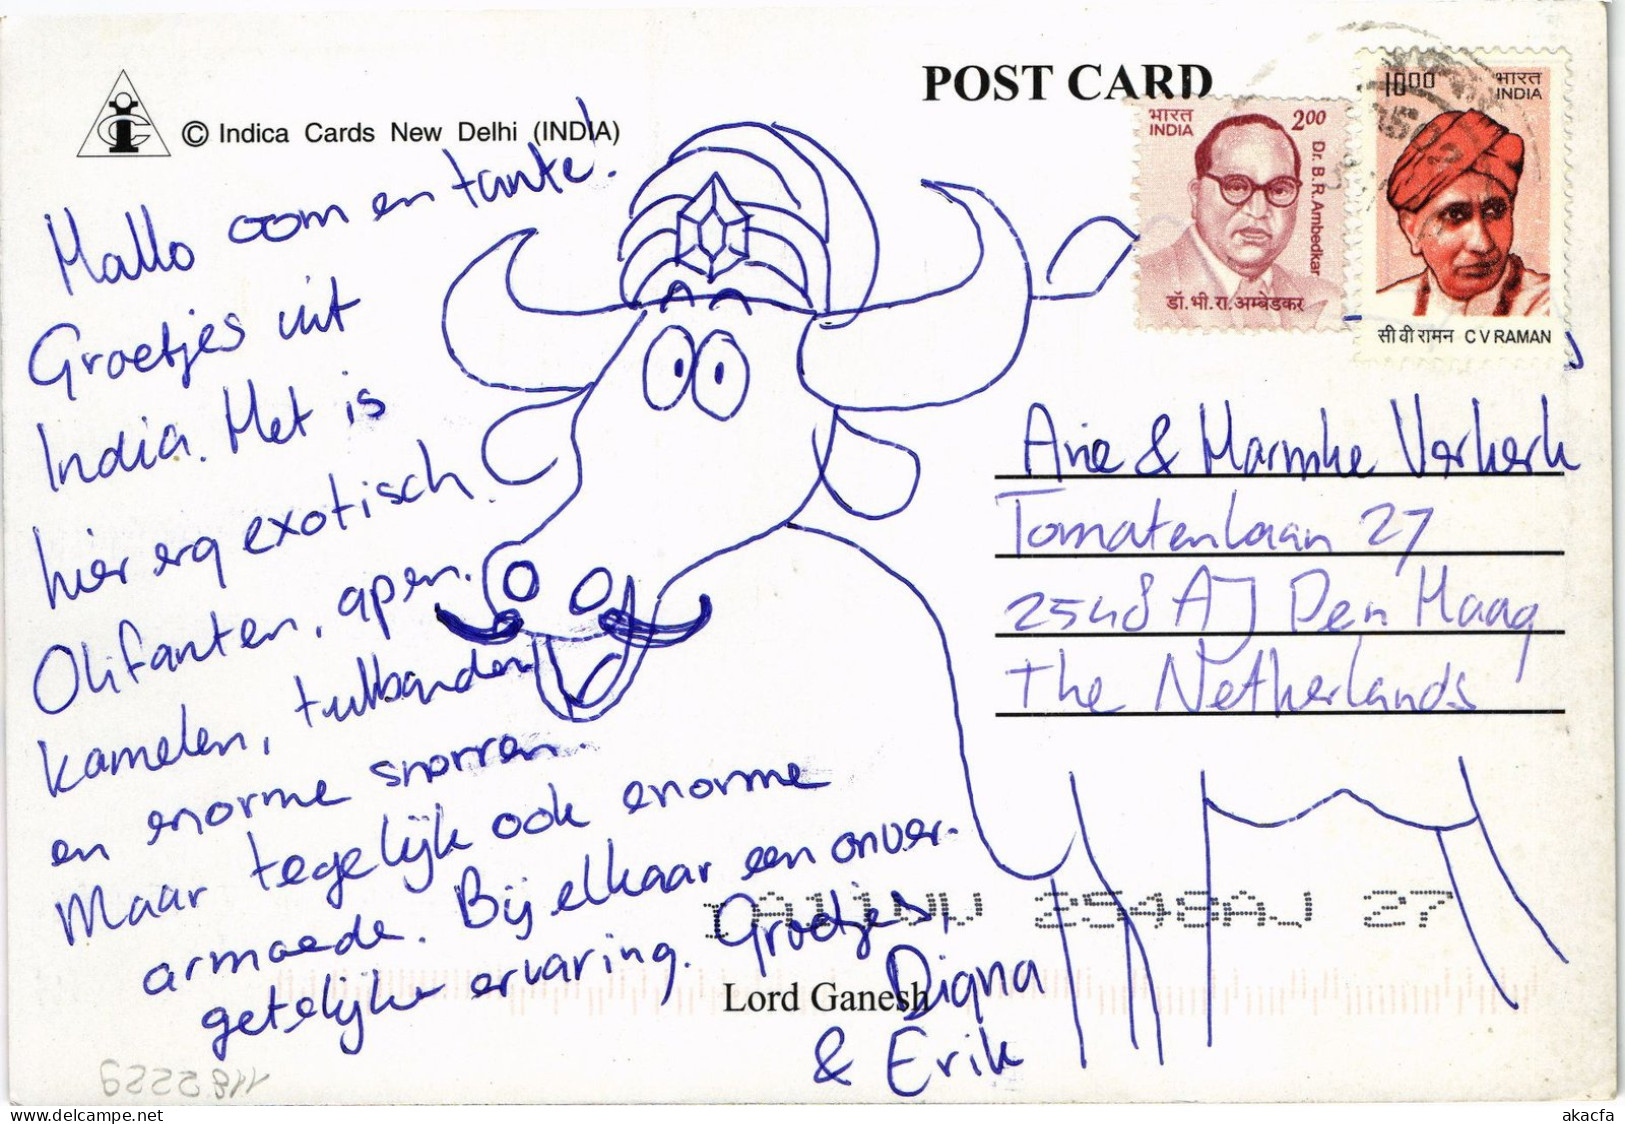 POST CARD
© Indica Cards New Delhi (INDIA)
भारत
INDIA
2.00
Dr. B. R. Ambedkar
डॉ. भी. रा. अम्बेडकर
1000
भारत
INDIA
सी वी रामन C V RAMAN
Hallo oom en tante!
Groetjes uit
India. Het is
hier erg exotisch.
Olifanten, apen.
kamelen, tulbanden
en enorme snorren.
Maar tegelijk ook enorme
armoede. Bij elkaar een onver-
getelijke ervaring. Groetjes,
Digna
& Erik
Arie & Marijke Verkerk
Tomatenlaan 27
2548 AJ Den Haag
The Netherlands
2548AJ 27
Lord Ganesh
1182229
akacfa